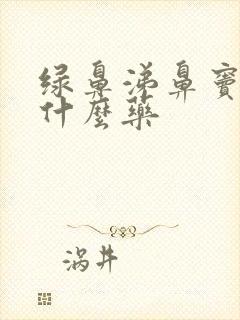 绿鼻涕鼻窦
什麼药
涡井